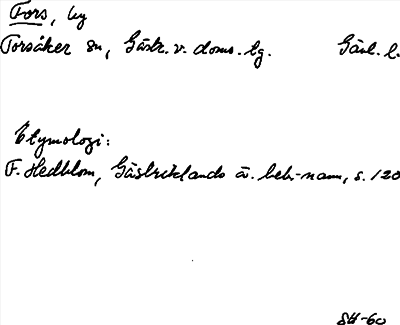 Fors, by
Torsåker sn, Gästr. v. doms. tg. Gävl. l.
Etymologi:
F. Hedblom, Gästriklands ä. beb-namn, s. 120
SH-60